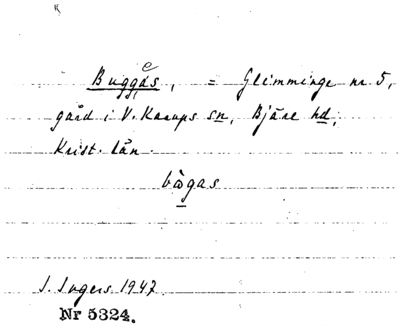 Buggås, = Glimminge nr 5,
gård i V. Karups sn, Bjäre hd,
Krist. län.
bùgas
I. Ingers 1947
Nr 5324.